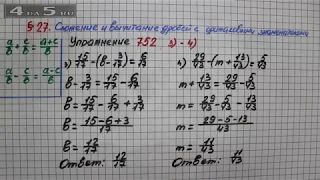 §27. Сложение и вычитание дробей с одинаковыми знаменателями
Упражнение 752 3)-4)
a/b + c/b = a+c/b
a/b - c/b = a-c/b
3) 15/17 - (b - 3/17) = 6/17
b - 3/17 = 15/17 - 6/17
b = 15/17 - 6/17 + 3/17
b = 15-6+3/17
b = 12/17
Ответ: 12/17
4) 29/43 - (m + 13/43) = 5/43
m + 13/43 = 29/43 - 5/43
m = 29/43 - 5/43 - 13/43
m = 29-5-13/43
m = 11/43
Ответ: 11/43